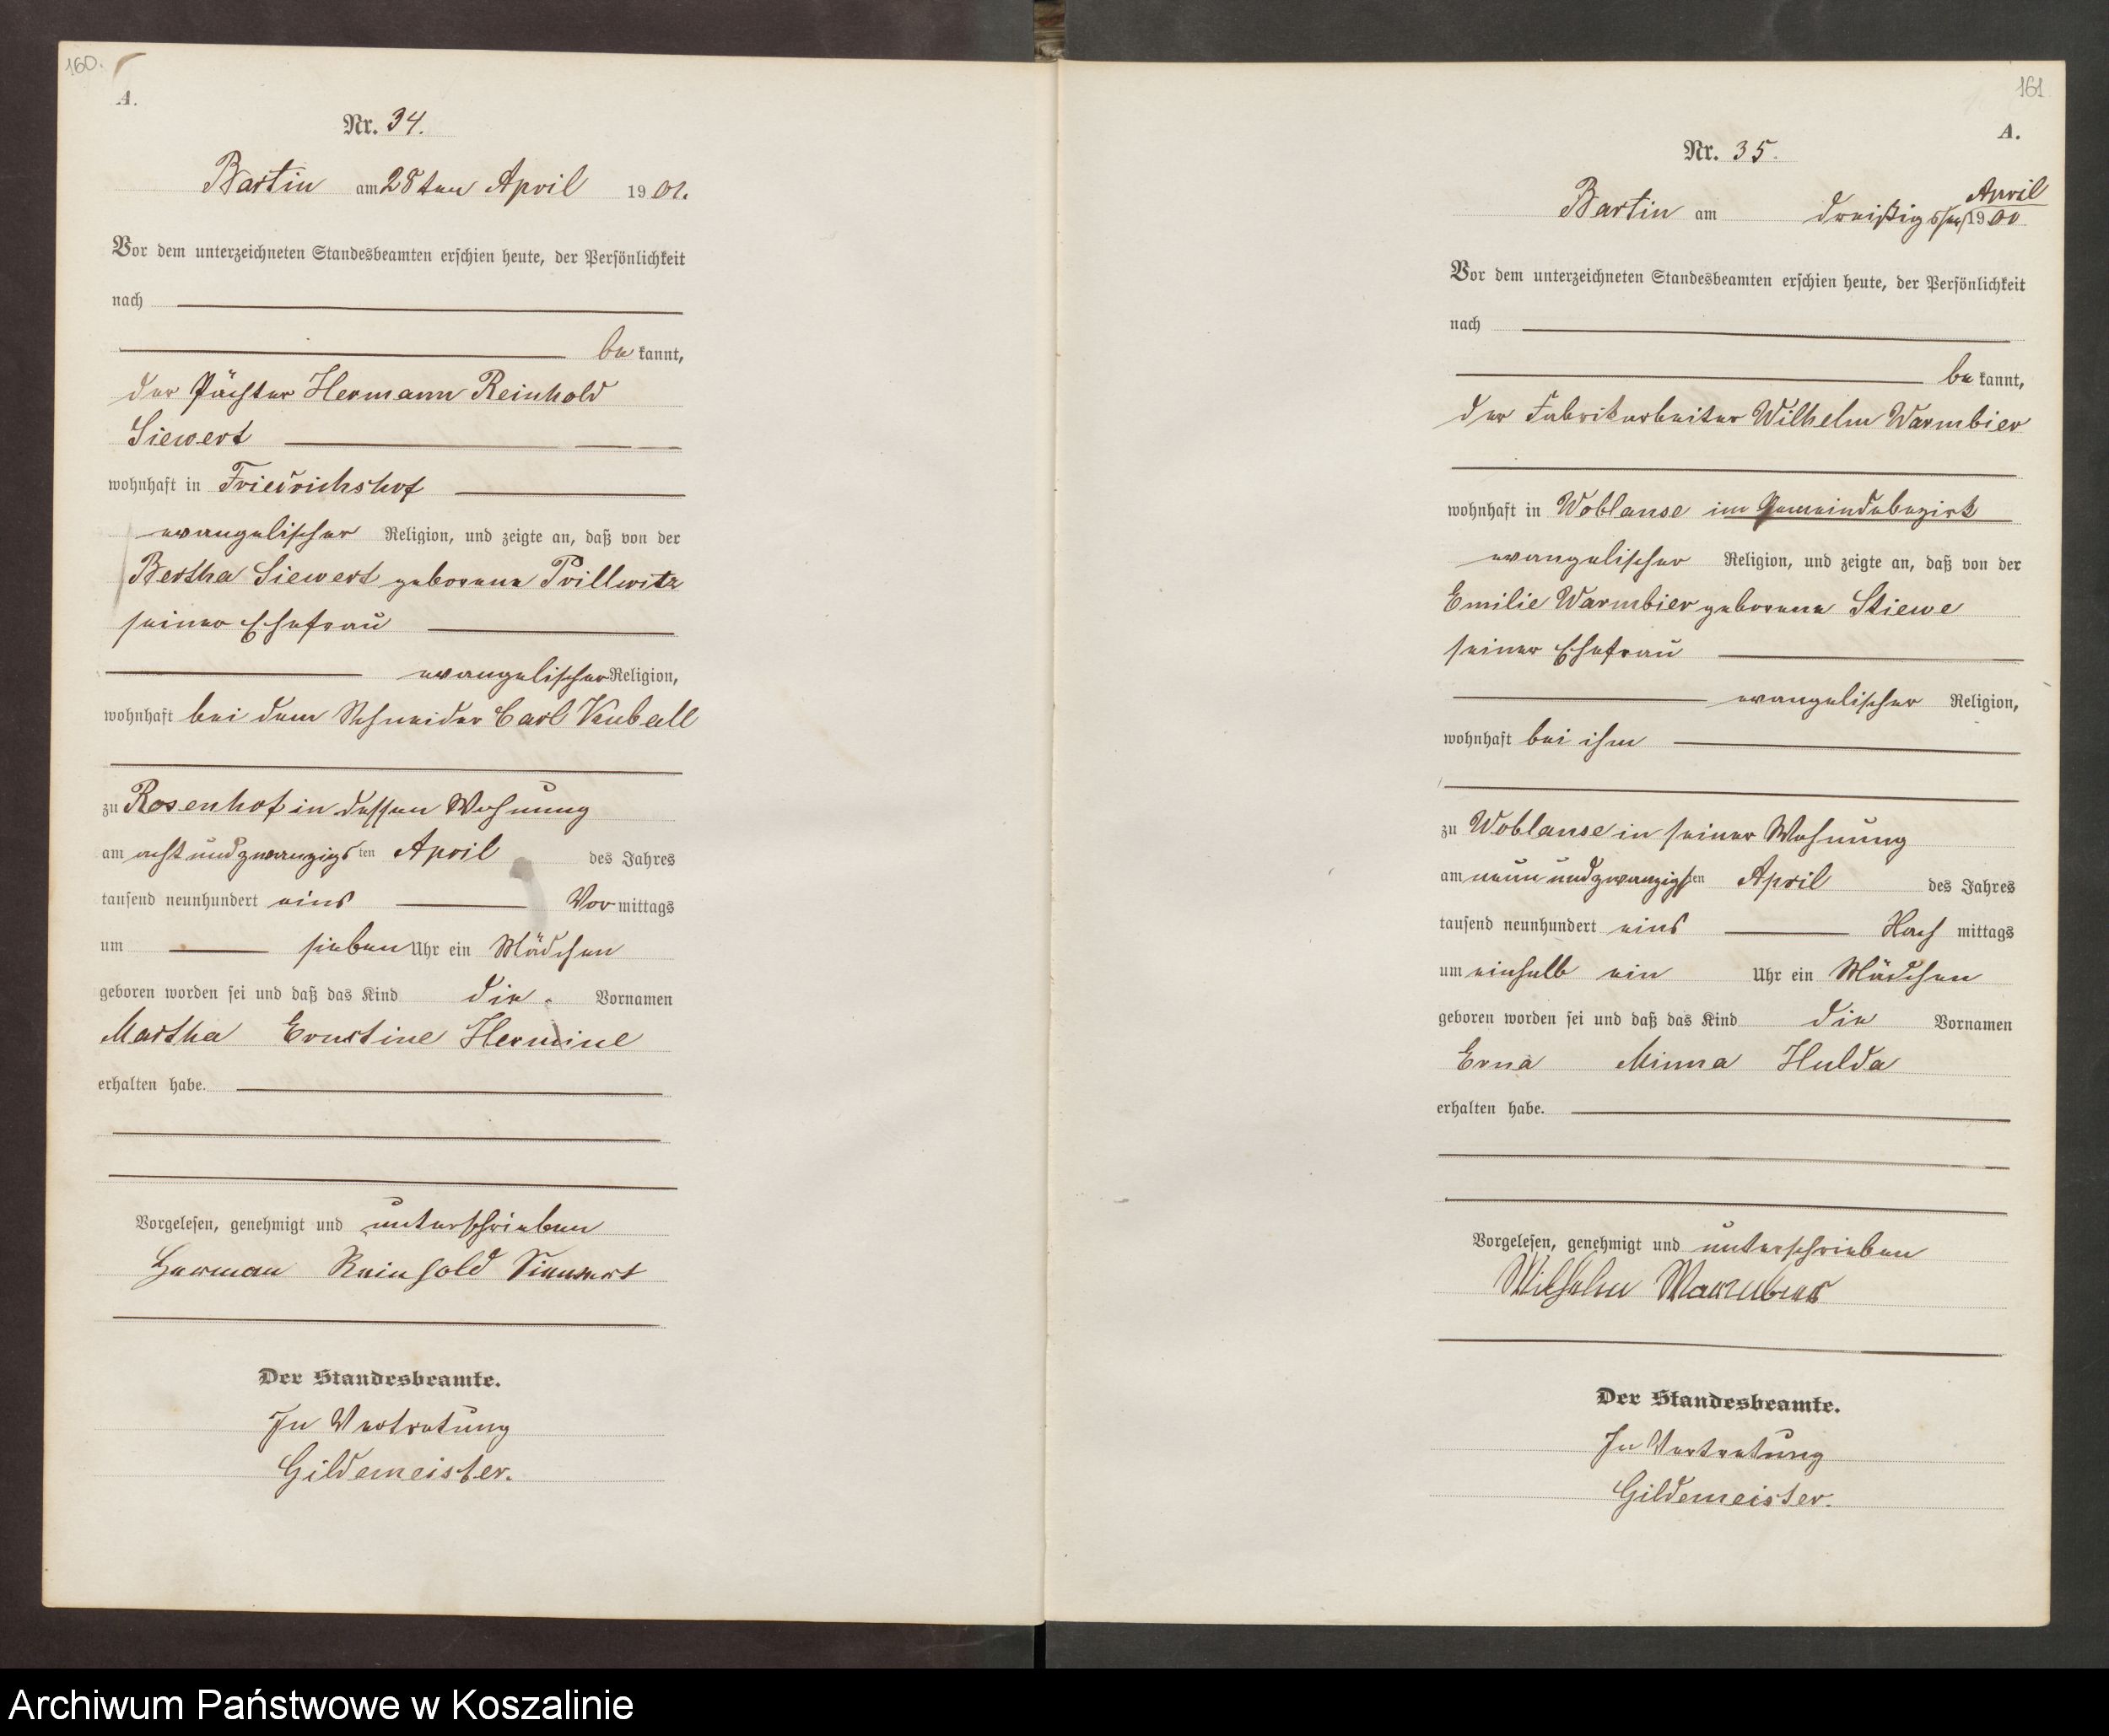 160.
A.
Nr. 34.
Bartin am 28ten April 1901.
Vor dem unterzeichneten Standesbeamten erschien heute, der Persönlichkeit
nach
be kannt,
der Pächter Hermann Reinhold
Siewert
wohnhaft in Friedrichshof
evangelischer Religion, und zeigte an, daß von der
Bertha Siewert geborene Prillwitz
seiner Ehefrau
evangelischer Religion,
wohnhaft bei dem Schneider Carl
zu Rosenhof in dessen Wohnung
am acht und zwanzigsten April des Jahres
tausend neunhundert eins Vor mittags
um sieben Uhr ein Mädchen
geboren worden sei und daß das Kind die Vornamen
Martha Ernstine Hermine
erhalten habe.
Vorgelesen, genehmigt und unterschrieben
Herman Reinhold Siewert
Der Standesbeamte.
In Vertretung
Gildemeister.
161
A.
Nr. 35.
April
Bartin am dreißigsten 1900
Vor dem unterzeichneten Standesbeamten erschien heute, der Persönlichkeit
nach
be kannt,
der Fabrikarbeiter Wilhelm Warmbier
wohnhaft in Woblanse im Gemeindebezirk
evangelischer Religion, und zeigte an, daß von der
Emilie Warmbier geborene Stiewe
seiner Ehefrau
evangelischer Religion,
wohnhaft bei ihm
zu Woblanse in seiner Wohnung
am neun und zwanzigsten April des Jahres
tausend neunhundert eins Nach mittags
um einhalb ein Uhr ein Mädchen
geboren worden sei und daß das Kind die Vornamen
Erna Minna Hulda
erhalten habe.
Vorgelesen, genehmigt und unterschrieben
Wilhelm Warmbier
Der Standesbeamte.
In Vertretung
Gildemeister.
Archiwum Państwowe w Koszalinie